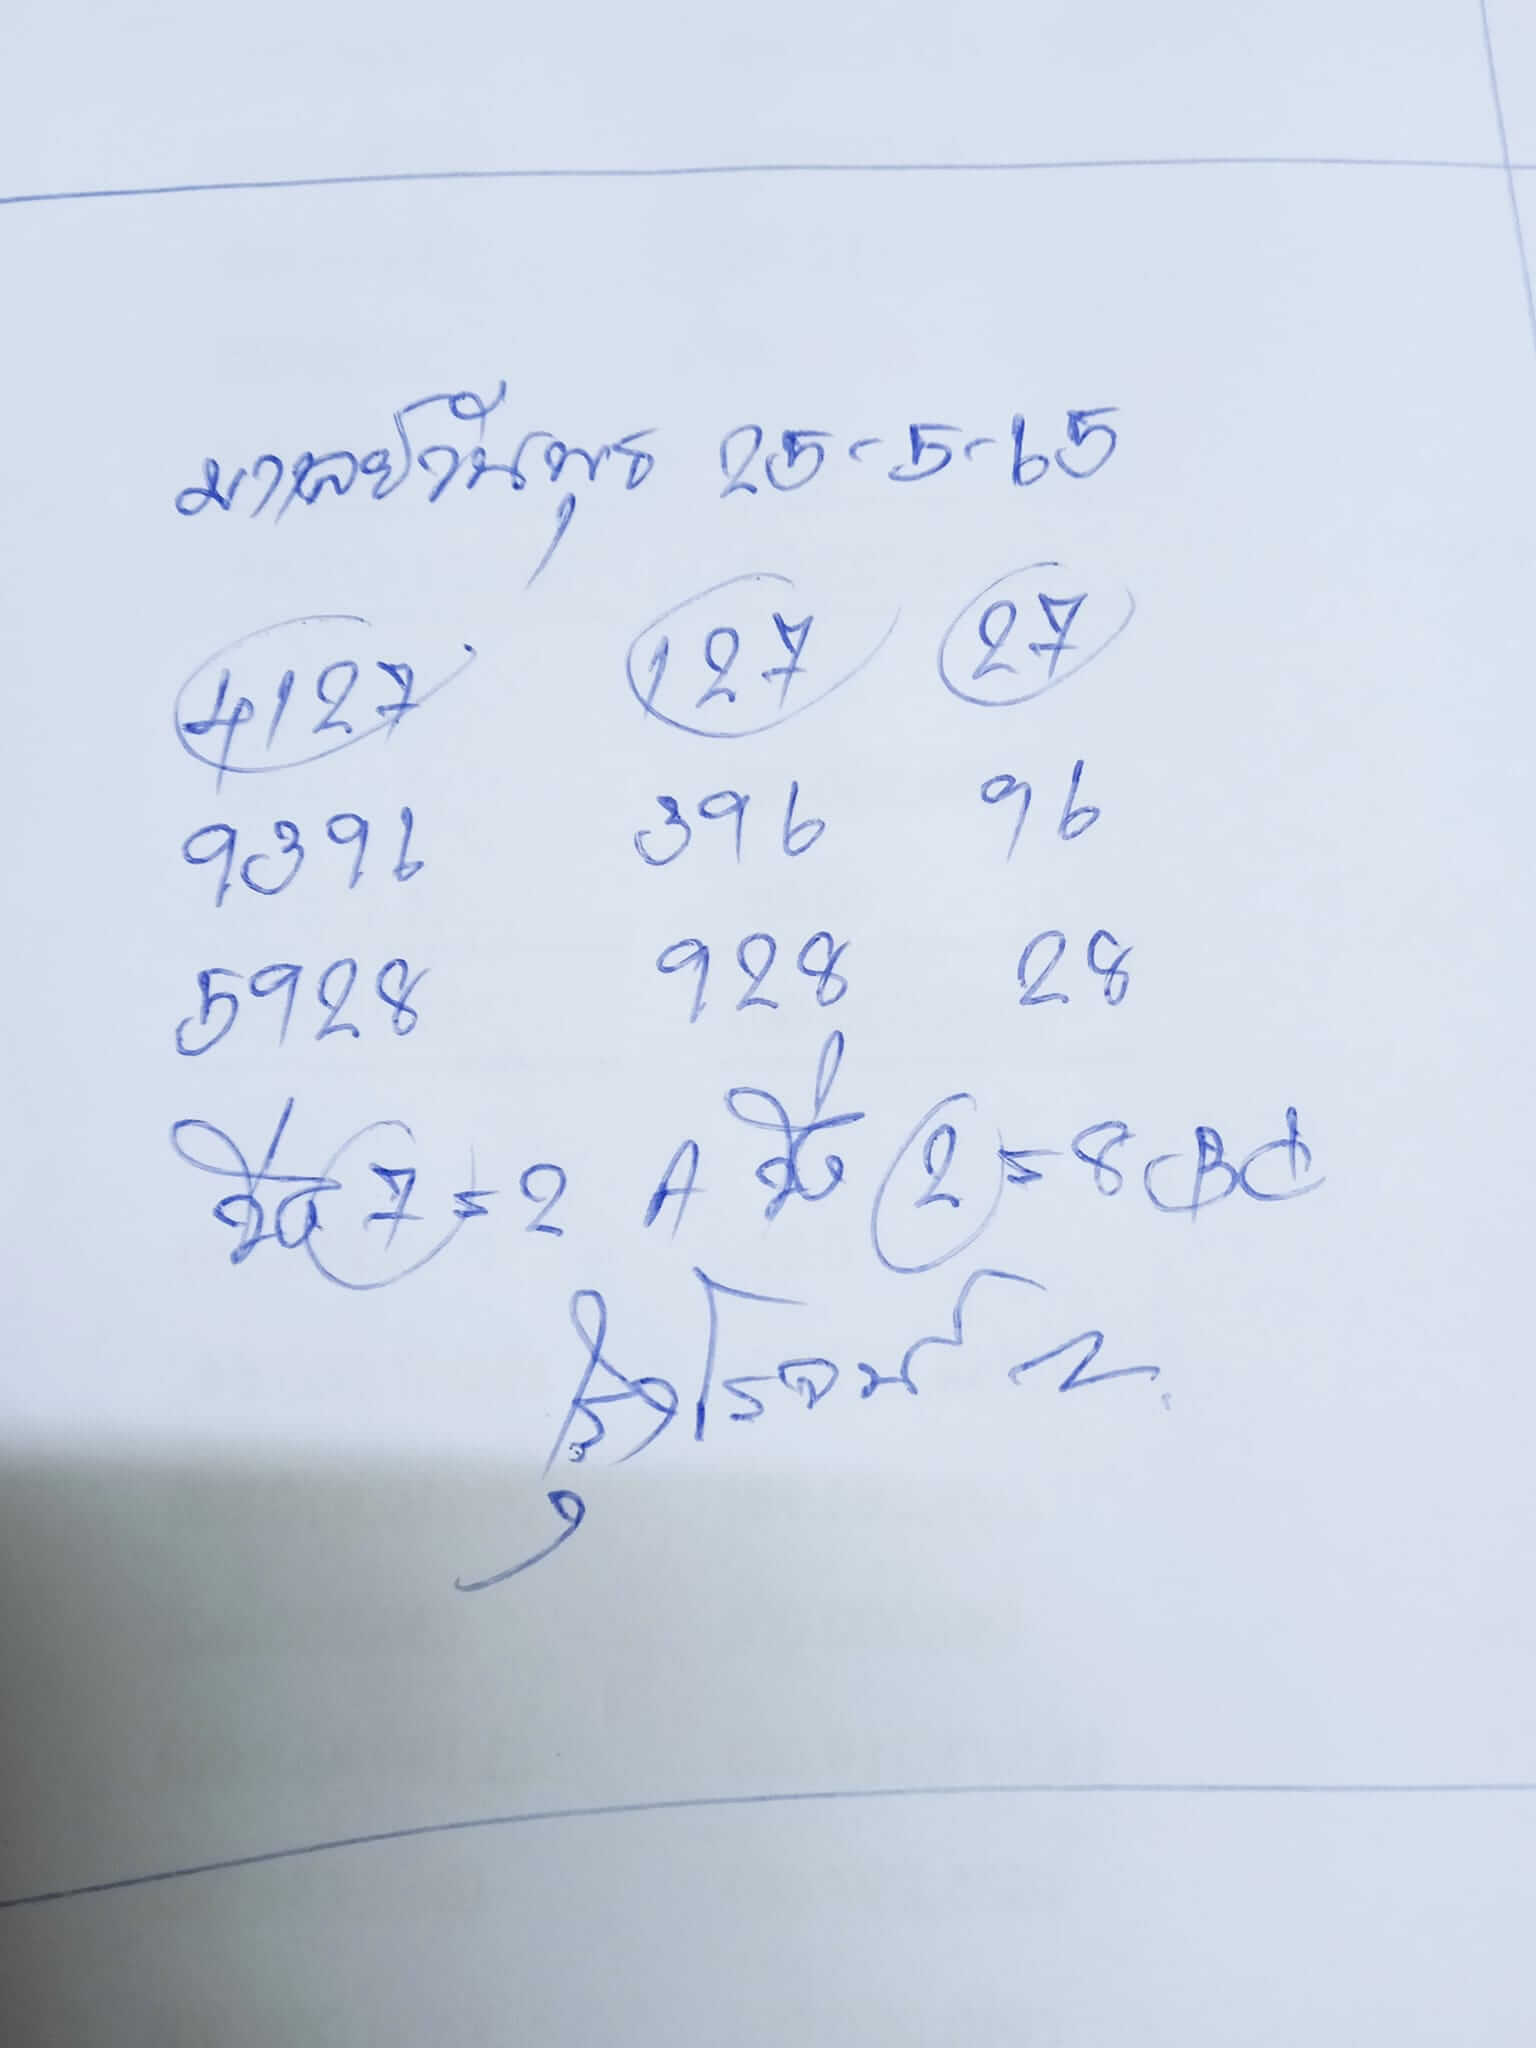 มาเลย์วันพุธ 25-5-65
4127 127 27
9396 396 96
5928 928 28
7=2 A 2=8 B C
รุ่งโรจน์